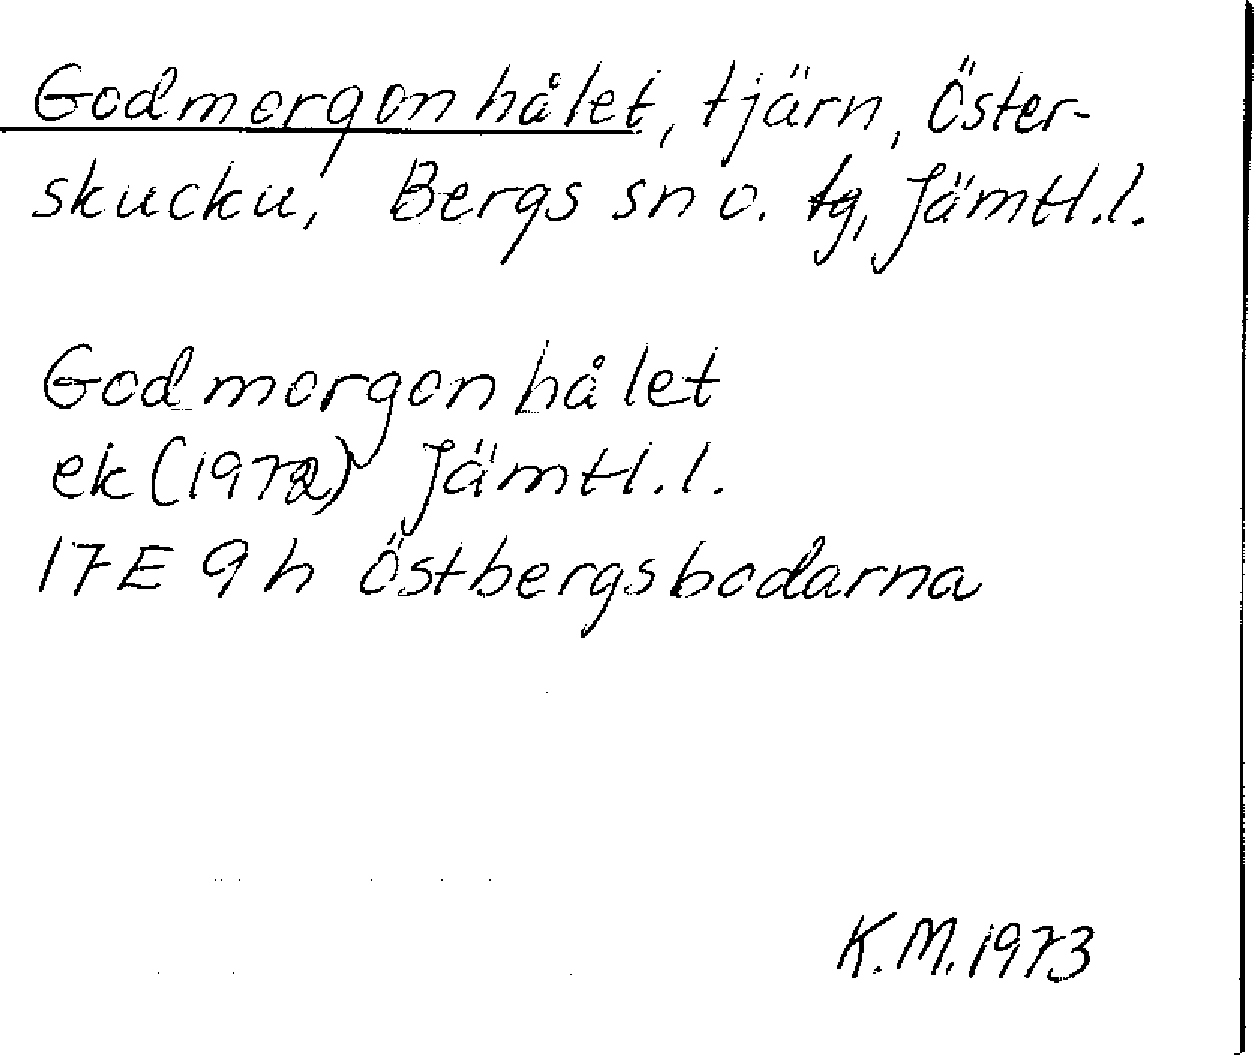 Godmorgonhålet, tjärn, Öster-
skucku, Bergs sn o. tg, Jämtl.l.
Godmorgonhålet
ek (1972) Jämtl.l.
17E 9h Östbergsbodarna
K.M. 1973